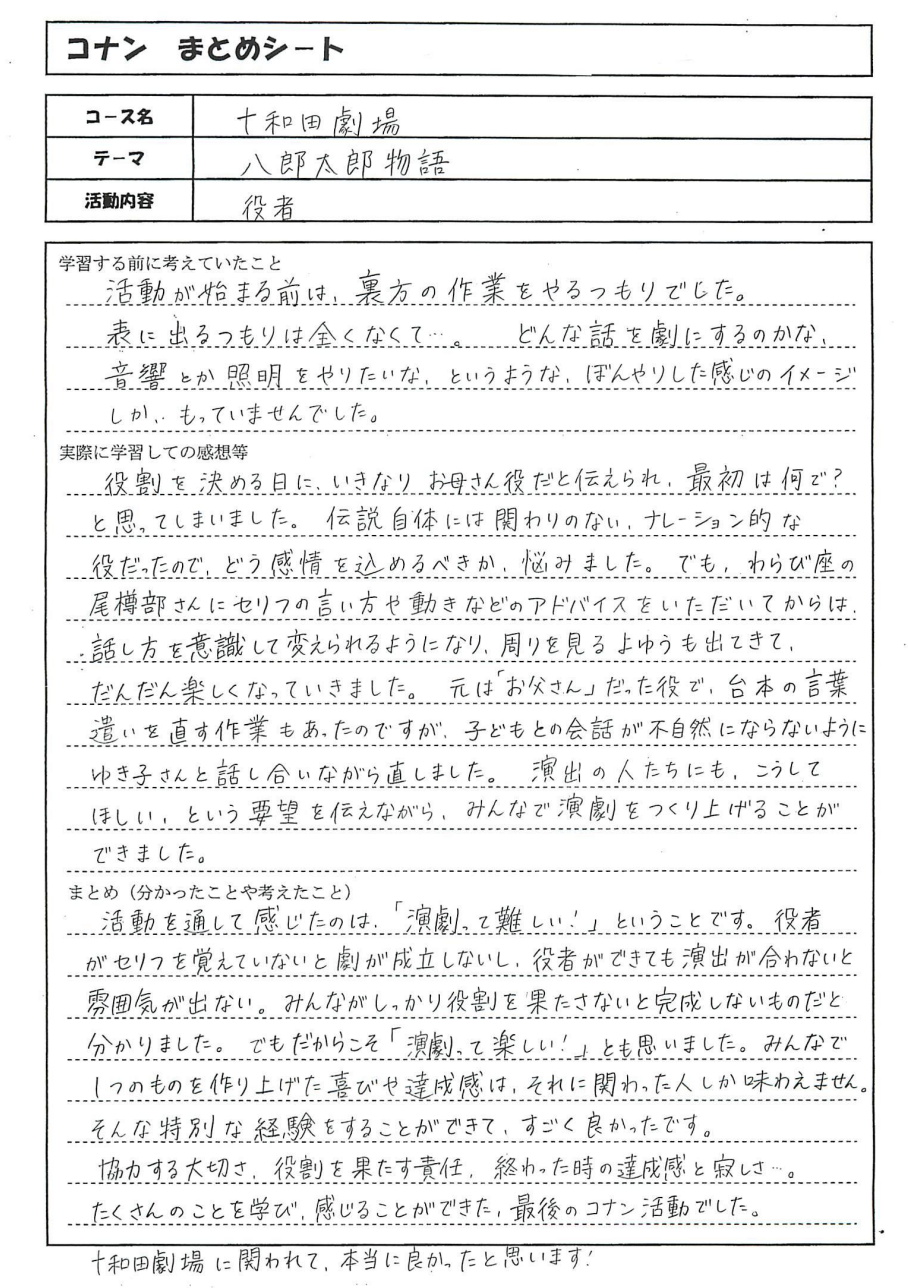 コナン　まとめシート
コース名　十和田劇場
テーマ　八郎太郎物語
活動内容　役者
学習する前に考えていたこと
活動が始まる前は、裏方の作業をやるつもりでした。
表に出るつもりは全くなくて…。　どんな話を劇にするのかな、
音響とか照明をやりたいな、というような、ぼんやりした感じのイメージ
しか、もっていませんでした。
実際に学習しての感想等
役割を決める日に、いきなりお母さん役だと伝えられ、最初は何で?
と思ってしまいました。伝説自体には関わりのない、ナレーション的な
役だったので、どう感情を込めるべきか、悩みました。でも、わらび座の
尾樽部さんにセリフの言い方や動きなどのアドバイスをいただいてからは、
話し方を意識して変えられるようになり、周りを見るよゆうも出てきて、
だんだん楽しくなっていきました。元は「お父さん」だった役で、台本の言葉
遣いを直す作業もあったのですが、子どもとの会話が不自然にならないように
ゆき子さんと話し合いながら直しました。演出の人たちにも、こうして
ほしい、という要望を伝えながら、みんなで演劇をつくり上げることが
できました。
まとめ（分かったことや考えたこと）
活動を通して感じたのは、「演劇って難しい!」ということです。役者
がセリフを覚えていないと劇が成立しないし、役者ができても演出が合わないと
雰囲気が出ない。みんながしっかり役割を果たさないと完成しないものだと
分かりました。でもだからこそ「演劇って楽しい!」とも思いました。みんなで
1つのものを作り上げた喜びや達成感は、それに関わった人しか味わえません。
そんな特別な経験をすることができて、すごく良かったです。
協力する大切さ、役割を果たす責任、終わった時の達成感と寂しさ…。
たくさんのことを学び、感じることができた、最後のコナン活動でした。
十和田劇場に関われて、本当に良かったと思います!